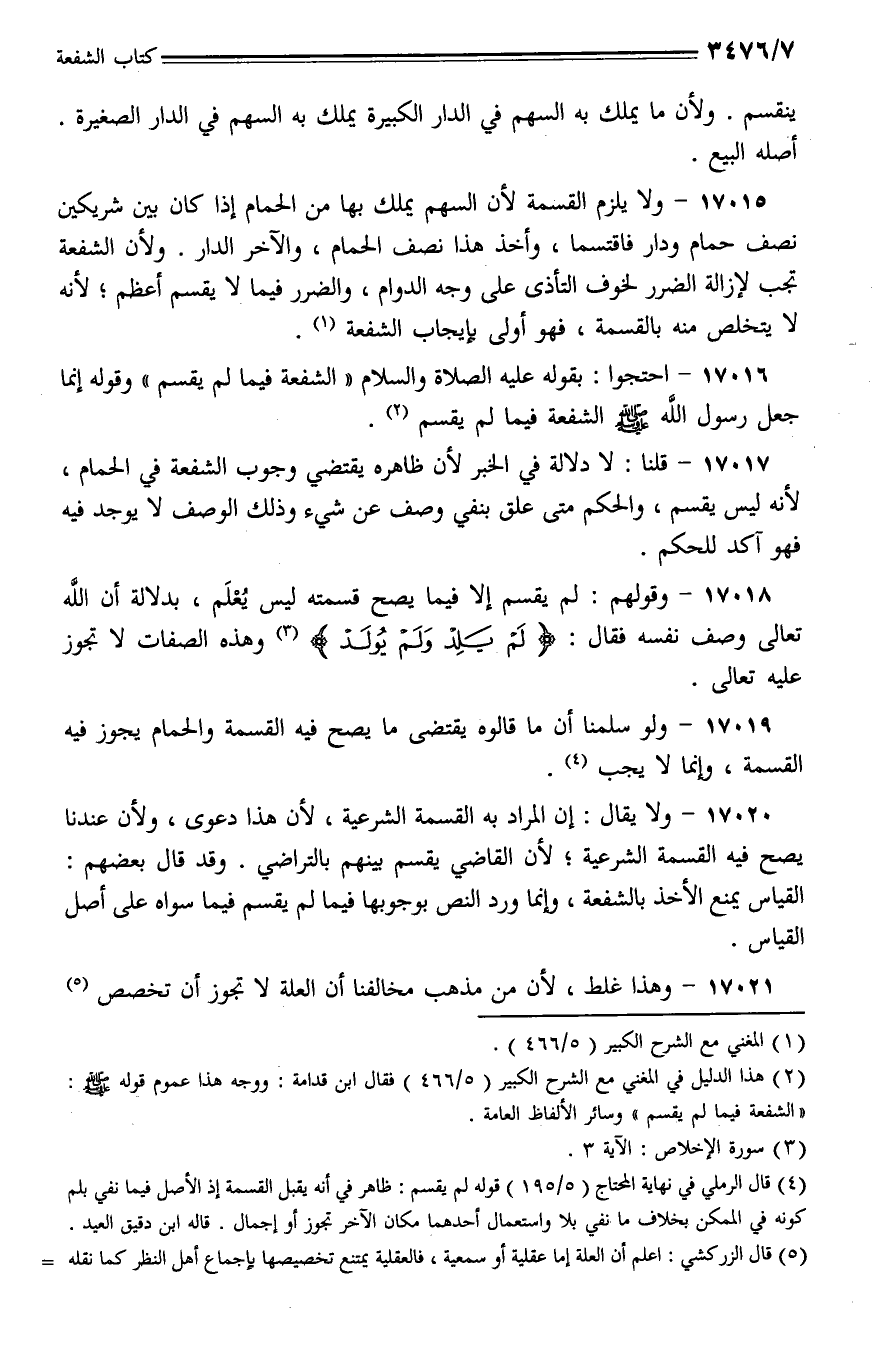 ٣٤٧٦/٧ كتاب الشفعة
ينقسم . ولأن ما يملك به السهم في الدار الكبيرة يملك به السهم في الدار الصغيرة .
أصله البيع .
١٧٠١٥ - ولا يلزم القسمة لأن السهم يملك بها من الحمام إذا كان بين شريكين
نصف حمام ودار فاقتسما ، وأخذ هذا نصف الحمام ، والآخر الدار . ولأن الشفعة
تجب لإزالة الضرر لخوف التأذى على وجه الدوام ، والضرر فيما لا يقسم أعظم ؛ لأنه
لا يتخلص منه بالقسمة ، فهو أولى بإيجاب الشفعة (١) .
١٧٠١٦ - احتجوا : بقوله عليه الصلاة والسلام « الشفعة فيما لم يقسم » وقوله إنما
جعل رسول اللَّه ﷺ الشفعة فيما لم يقسم (٢) .
١٧٠١٧ - قلنا : لا دلالة في الخبر لأن ظاهره يقتضي وجوب الشفعة في الحمام ،
لأنه ليس يقسم ، والحكم متى علق بنفي وصف عن شيء وذلك الوصف لا يوجد فيه
فهو آكد للحكم .
١٧٠١٨ - وقولهم : لم يقسم إلا فيما يصح قسمته ليس يُعْلَم ، بدلالة أن اللَّه
تعالى وصف نفسه فقال : ﴿ لَمْ يَلِدْ وَلَمْ يُولَدْ ﴾ (٣) وهذه الصفات لا تجوز
عليه تعالى .
١٧٠١٩ - ولو سلمنا أن ما قالوه يقتضى ما يصح فيه القسمة والحمام يجوز فيه
القسمة ، وإنما لا يجب (٤) .
١٧٠٢٠ - ولا يقال : إن المراد به القسمة الشرعية ، لأن هذا دعوى ، ولأن عندنا
يصح فيه القسمة الشرعية ؛ لأن القاضي يقسم بينهم بالتراضي . وقد قال بعضهم :
القياس يمنع الأخذ بالشفعة ، وإنما ورد النص بوجوبها فيما لم يقسم فيما سواه على أصل
القياس .
١٧٠٢١ - وهذا غلط ، لأن من مذهب مخالفنا أن العلة لا تجوز أن تخصص (٥)
(١) المغني مع الشرح الكبير ( ٤٦٦/٥ ) .
(٢) هذا الدليل في المغني مع الشرح الكبير ( ٤٦٦/٥ ) فقال ابن قدامة : ووجه هذا عموم قوله ﷺ :
« الشفعة فيما لم يقسم » وسائر الألفاظ العامة .
(٣) سورة الإخلاص : الآية ٣ .
(٤) قال الرملي في نهاية المحتاج ( ١٩٥/٥ ) قوله لم يقسم : ظاهر في أنه يقبل القسمة إذ الأصل فيما نفي بلم
كونه في الممكن بخلاف ما نفي بلا واستعمال أحدهما مكان الآخر تجوز أو إجمال . قاله ابن دقيق العيد .
(٥) قال الزركشي : اعلم أن العلة إما عقلية أو سمعية ، فالعقلية يمتنع تخصيصها بإجماع أهل النظر كما نقله =